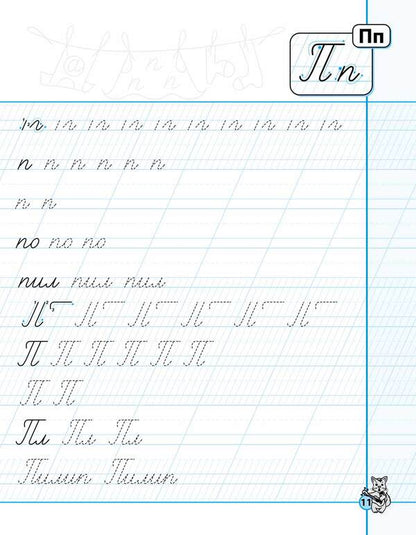 Пп
Пп
п п п п п п
п п
по по по
пил пил пил
П П П П П П
П П
Пл Пл Пл
Пилип Пилип
11